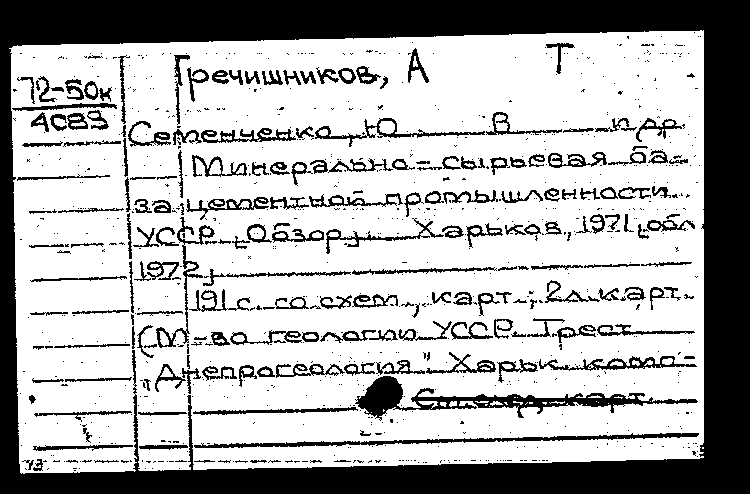 Гречишников, А Т
72-50к
4089
Семенченко, Ю В и др
Минерально-сырьевая ба-
за цементной промышленности
УССР [Обзор] Харьков, 1971, [обл
1972]
191 с. со схем., карт.; 2 л. карт.
(М-во геологии УССР. Трест
"Днепрогеология". Харьк. комп-
карт.